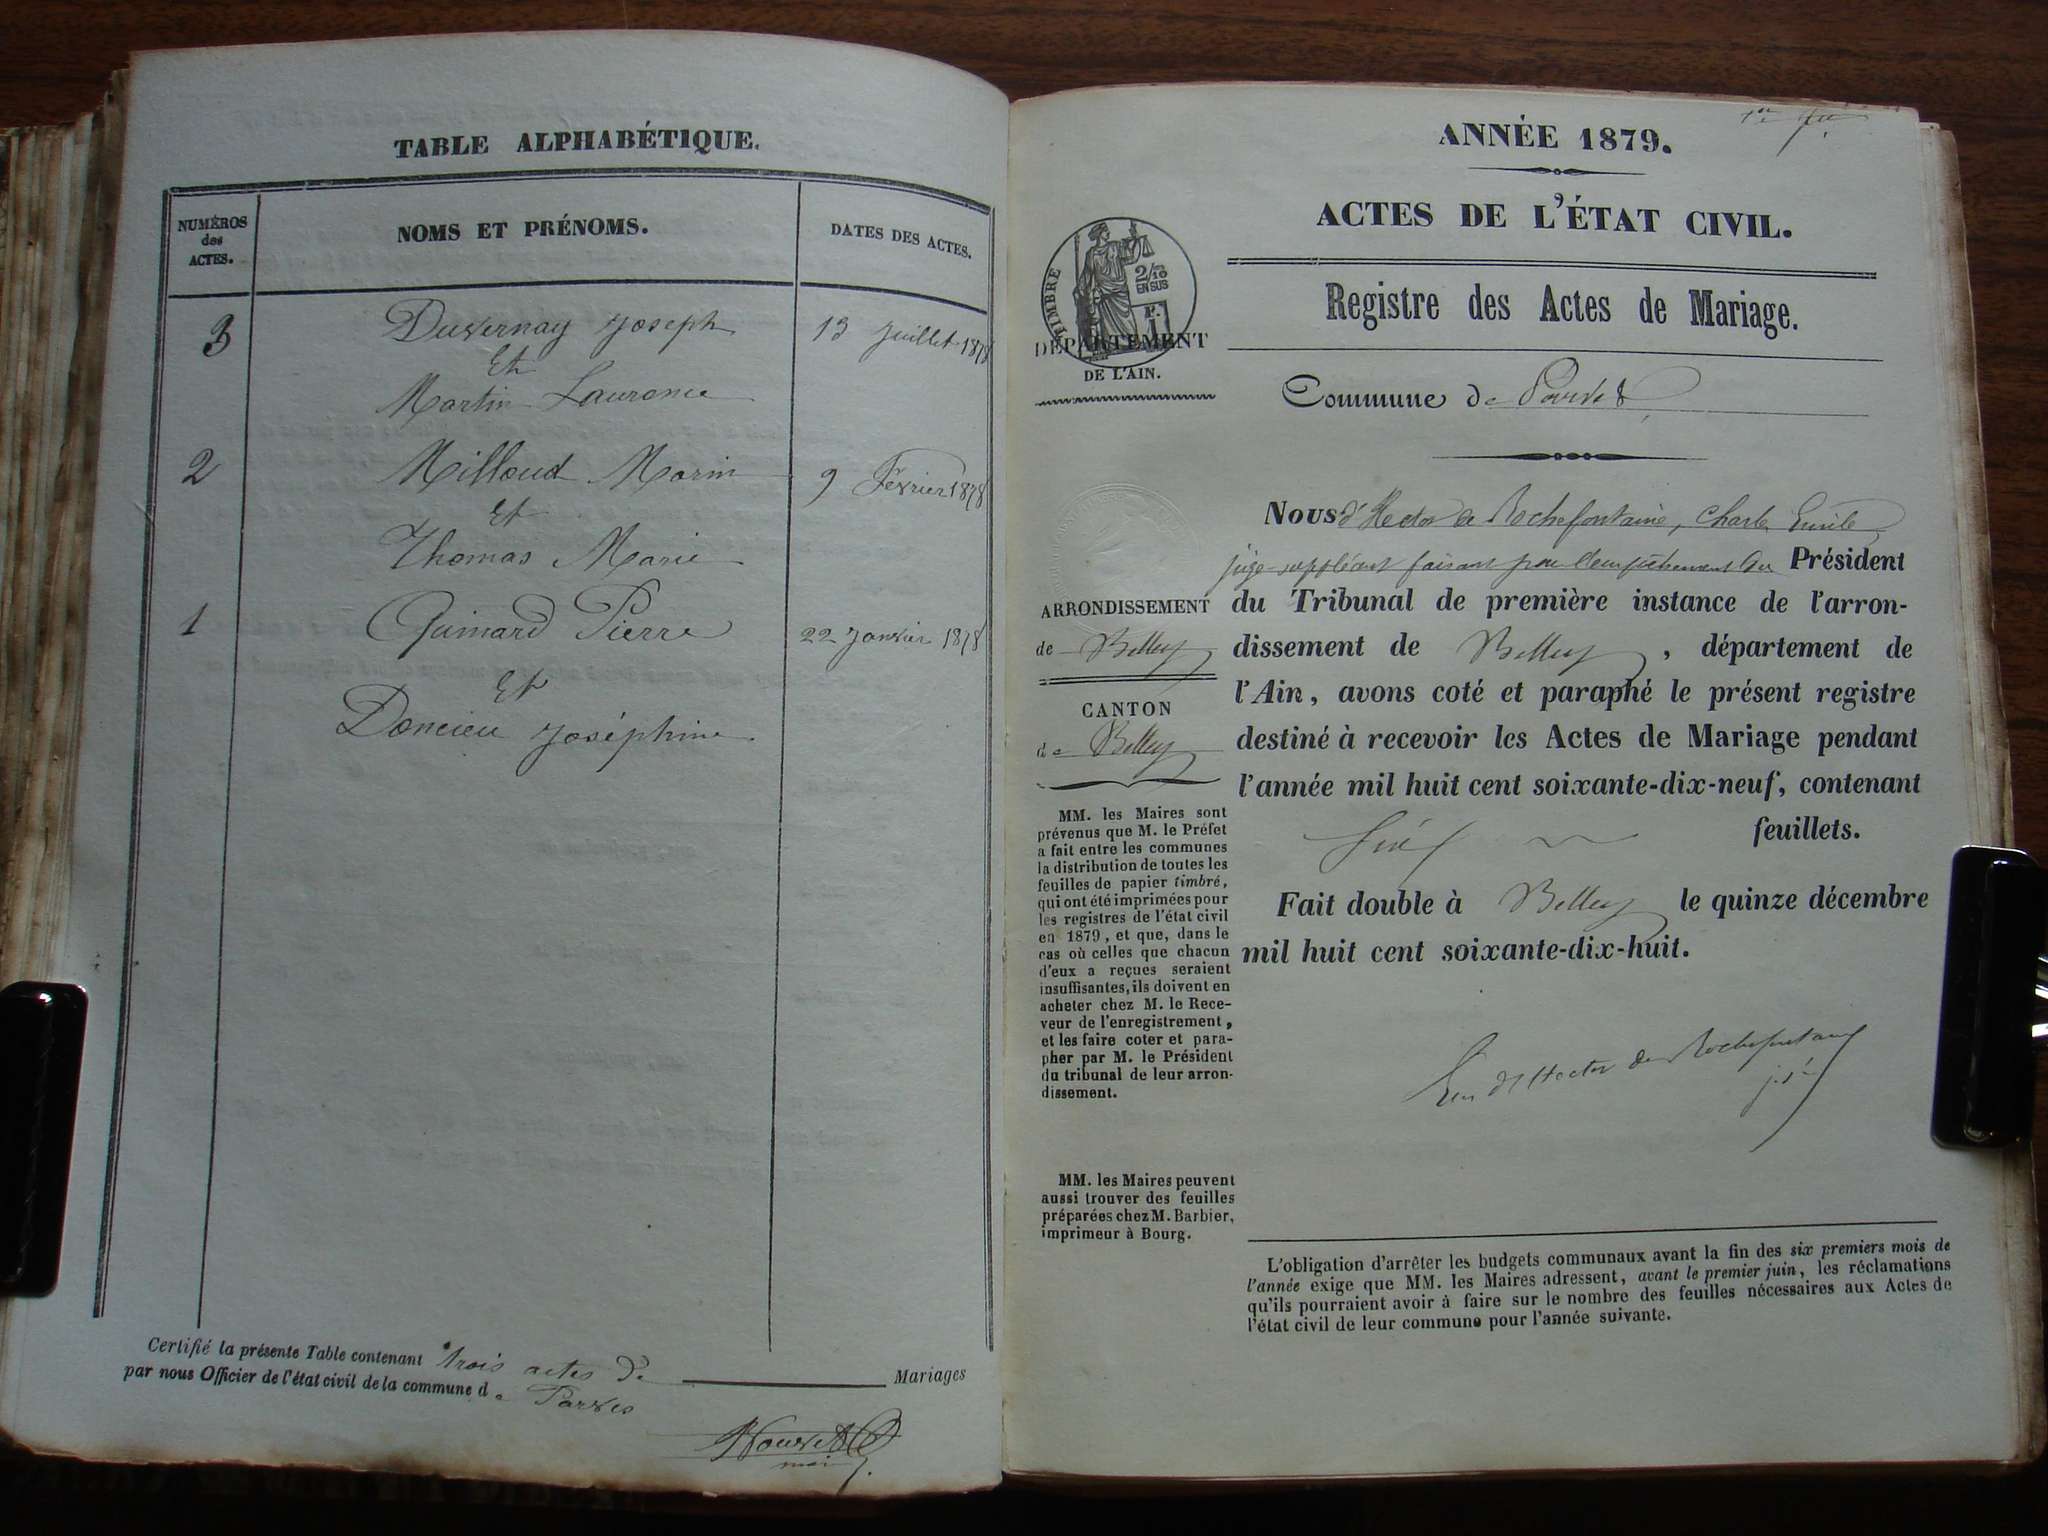 TABLE ALPHABÉTIQUE.
NUMÉROS
des
ACTES.
NOMS ET PRÉNOMS.
DATES DES ACTES.
3 Duvernay Joseph 13 Juillet 1878
Et
Martin Laurence
2 Milloud Marin 9 Février 1878
Et
Thomas Marie
1 Guimard Pierre 22 Janvier 1878
Et
Doncieu Joséphine
Certifié la présente Table contenant trois actes de Mariages
par nous Officier de l'état civil de la commune de Parves
ANNÉE 1879.
ACTES DE L'ÉTAT CIVIL.
Registre des Actes de Mariage.
TIMBRE
2/10
EN SUS
DÉPARTEMENT
DE L'AIN.
Commune de Parves
Nous d'Hector de Rochefontaine, Charles Emile
juge suppléant faisant pour l'empêchement du Président
du Tribunal de première instance de l'arron-
dissement de Belley, département de
l'Ain, avons coté et paraphé le présent registre
destiné à recevoir les Actes de Mariage pendant
l'année mil huit cent soixante-dix-neuf, contenant
six feuillets.
Fait double à Belley le quinze décembre
mil huit cent soixante-dix-huit.
d'Hector de Rochefontaine
ARRONDISSEMENT
de Belley
CANTON
de Belley
MM. les Maires sont
prévenus que M. le Préfet
a fait entre les communes
la distribution de toutes les
feuilles de papier timbré,
qui ont été imprimées pour
les registres de l'état civil
en 1879, et que, dans le
cas où celles que chacun
d'eux a reçues seraient
insuffisantes, ils doivent en
acheter chez M. le Rece-
veur de l'enregistrement,
et les faire coter et para-
pher par M. le Président
du tribunal de leur arron-
dissement.
MM. les Maires peuvent
aussi trouver des feuilles
préparées chez M. Barbier,
imprimeur à Bourg.
L'obligation d'arrêter les budgets communaux avant la fin des six premiers mois de
l'année exige que MM. les Maires adressent, avant le premier juin, les réclamations
qu'ils pourraient avoir à faire sur le nombre des feuilles nécessaires aux Actes de
l'état civil de leur commune pour l'année suivante.